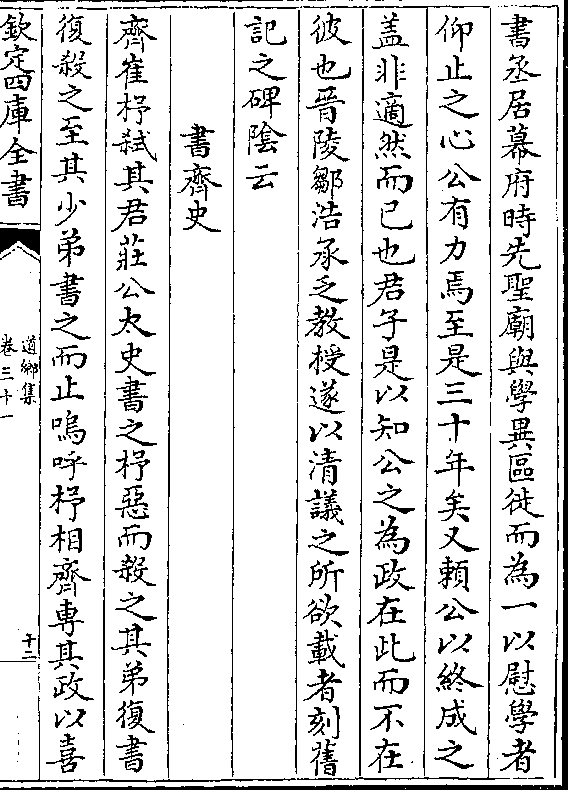 書丞居幕府時先聖廟與學異區徙而為一以慰學者
仰止之心公有力焉至是三十年矣又賴公以終成之
盖非適然而已也君子是以知公之為政在此而不在
彼也晉陵鄒浩承乏教授遂以清議之所欲載者刻舊
記之碑陰云
書齊史
齊崔杼弑其君莊公太史書之杼惡而殺之其弟復書
復殺之至其少弟書之而止嗚呼杼相齊專其政以喜
欽定四庫全書
道鄉集
卷三十一
十二